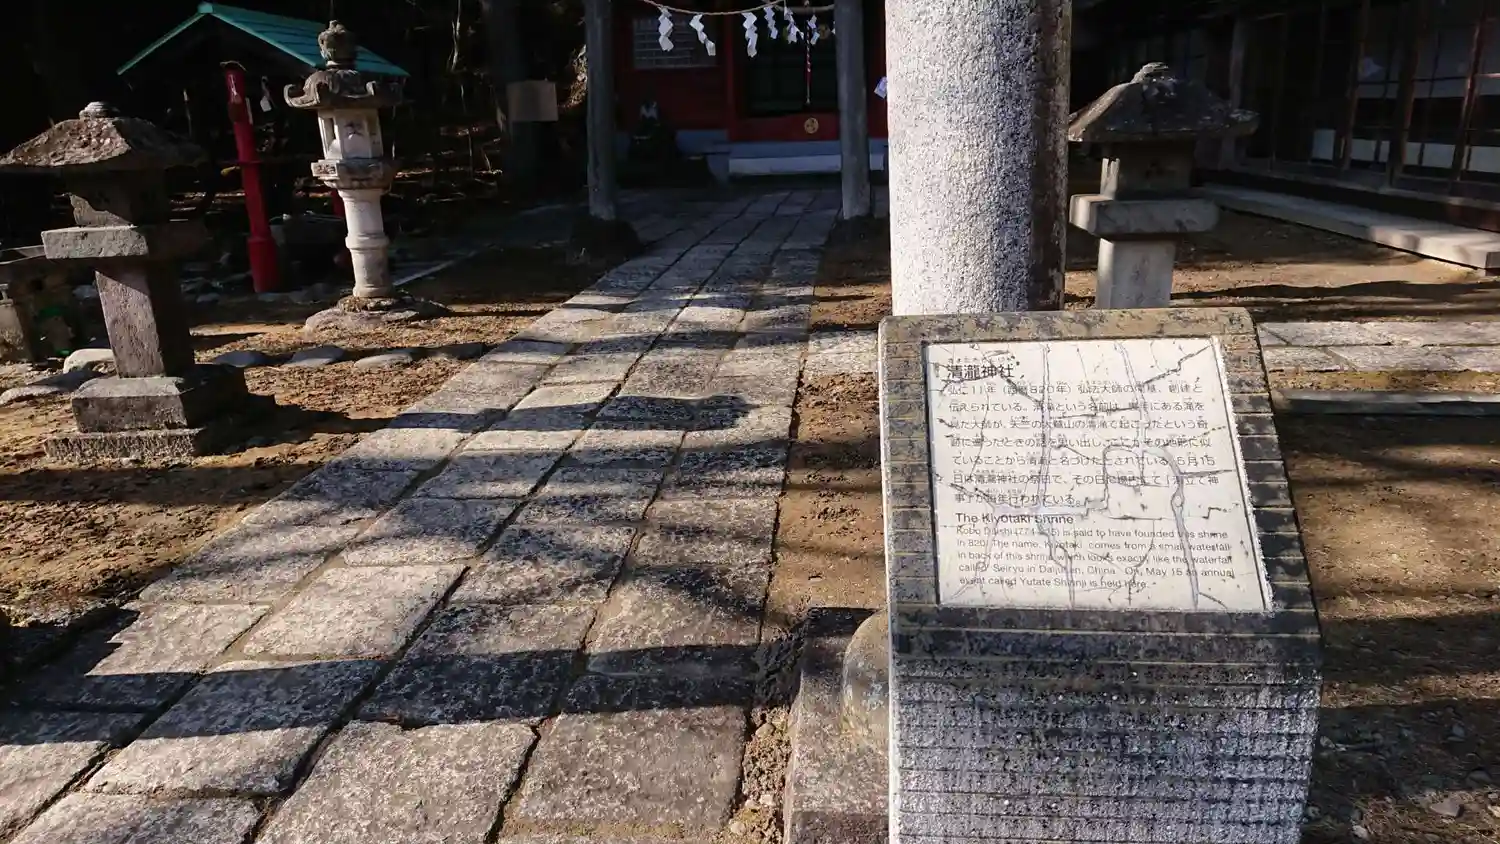 きよたきじんじゃ
清瀧神社
弘仁11年(西暦820年)弘法大師の開基、創建と
伝えられている。清滝という名前は、裏手にある滝を
見た大師が、大鷲山の清滝で起こったという奇
跡に遭ったときの話を思い出し、ここがその地形に似
ていることから清滝と名づけたとされている。5月15
日は清瀧神社の祭日で、その日に境内にて「湯立て神
事」が毎年行われている。
The Kiyotaki Shrine
Kobo Daishi (774-835) is said to have founded this shrine
in 820. The name, Kiyotaki comes from a small waterfall
in back of this shrine which looks exactly like the waterfall
called Seiryu in Daijuhen, China. On, May 15 an annual
event called Yutate Shinji is held here.